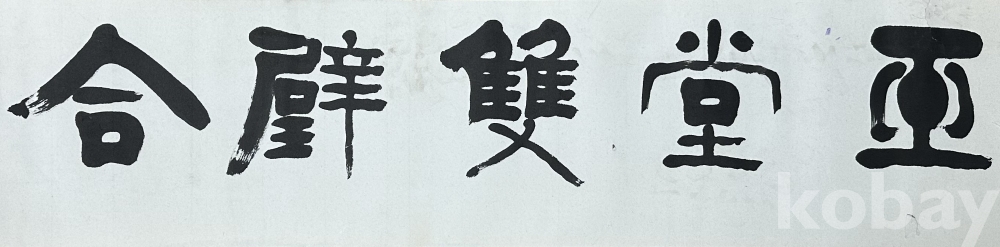 亞堂雙璧合
kobay